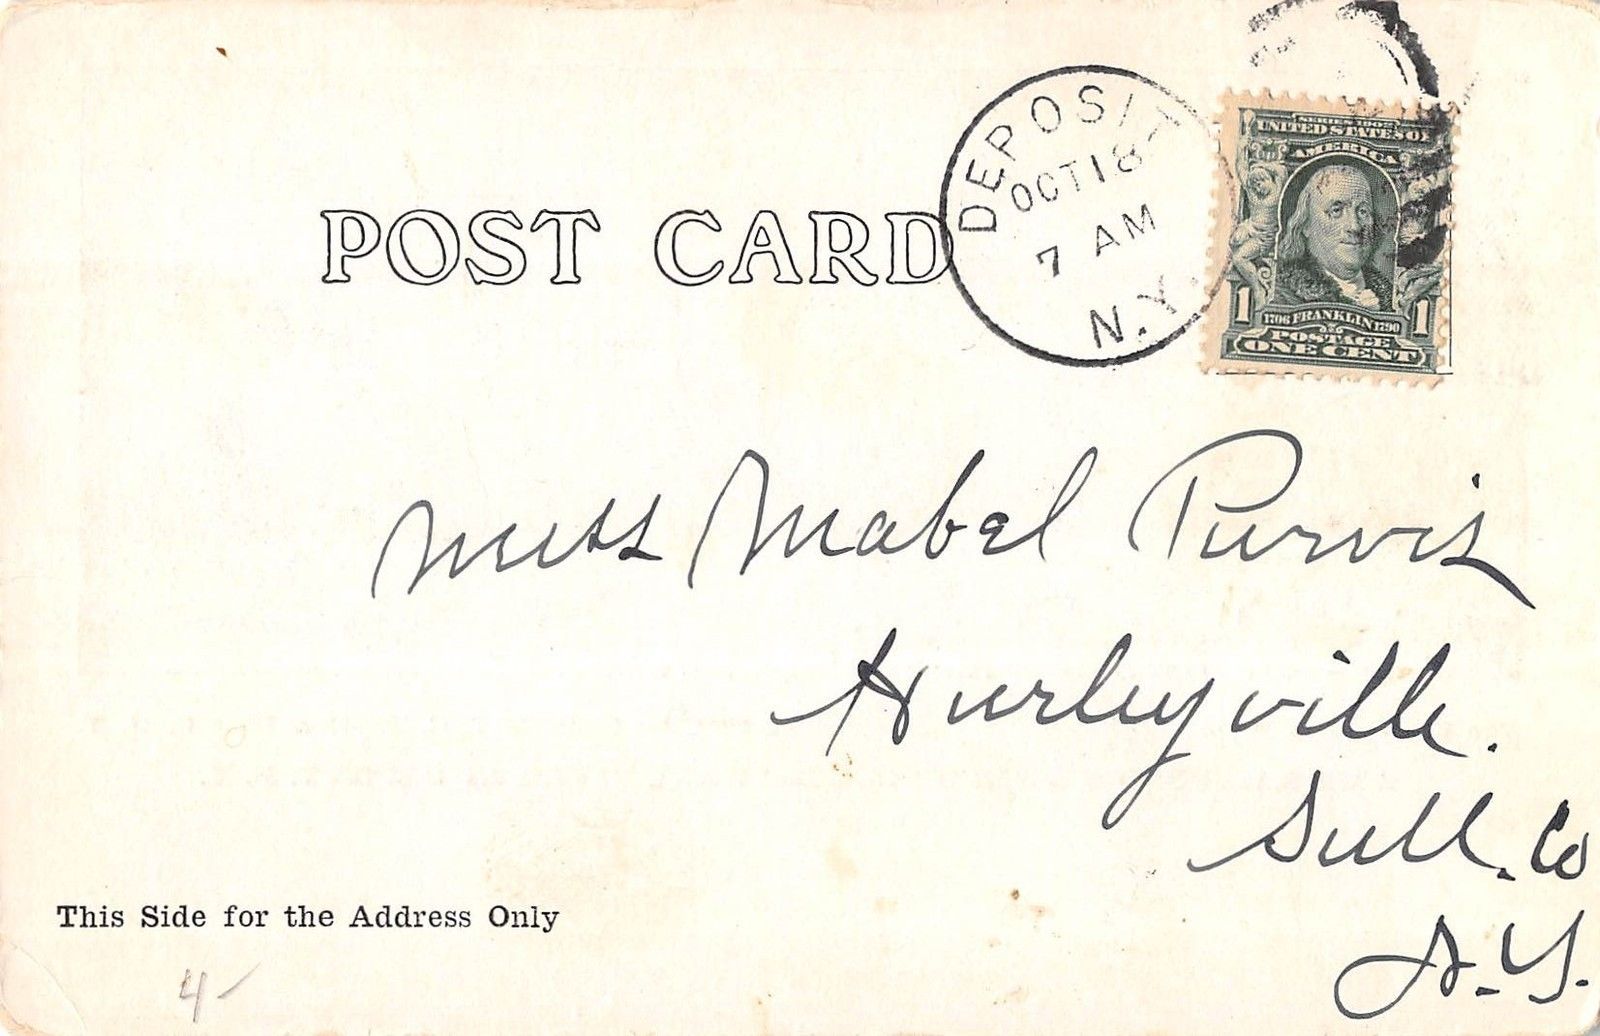 POST CARD
DEPOSIT
OCT 18
7 AM
N.Y.
SERIES 1902
UNITED STATES OF
AMERICA
1 1706 FRANKLIN 1790 1
POSTAGE
ONE CENT
Miss Mabel Purvis
Hurleyville.
Sull. Co
N.Y.
This Side for the Address Only
4-